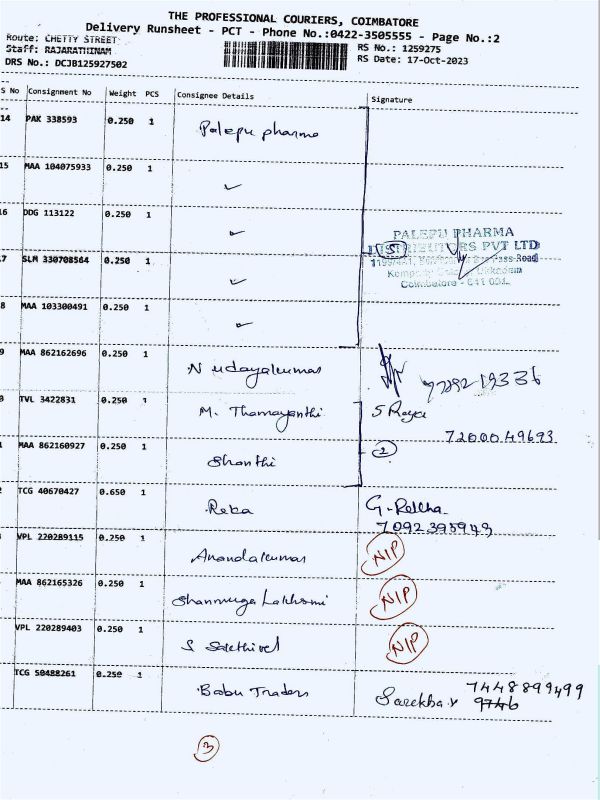 THE PROFESSIONAL COURIERS, COIMBATORE
Delivery Runsheet - PCT - Phone No.:0422-3505555 - Page No.:2
Route: CHETTY STREET
RS No.: 1259275
Staff: RAJARATHINAM
RS Date: 17-Oct-2023
DRS No.: DCJB125927502
S No Consignment No Weight PCS Consignee Details Signature
14 PAK 338593 0.250 1 Palepu pharma
15 MAA 104075933 0.250 1 ✓
16 DDG 113122 0.250 1 ✓
PALEPU PHARMA
DISTRIBUTORS PVT LTD
17 SLM 330708564 0.250 1 ✓ 5
Coimbatore
8 MAA 103300491 0.250 1 ✓
9 MAA 862162696 0.250 1 N udayakumar
0 TVL 3422831 0.250 1 M. Thamayanthi S Roja
7200049693
MAA 862160927 0.250 1 Shanthi 2
2 TCG 40670427 0.650 1 Reka G. Rekha
7092395949
VPL 220289115 0.250 1 Anandakumar NIP
MAA 862165326 0.250 1 Shanmuga Lakhsmi NIP
VPL 220289403 0.250 1 S Sakthivel NIP
TCG 50488261 0.250 1 Babu Traders 7448899499
Sarekha.v 9746
3